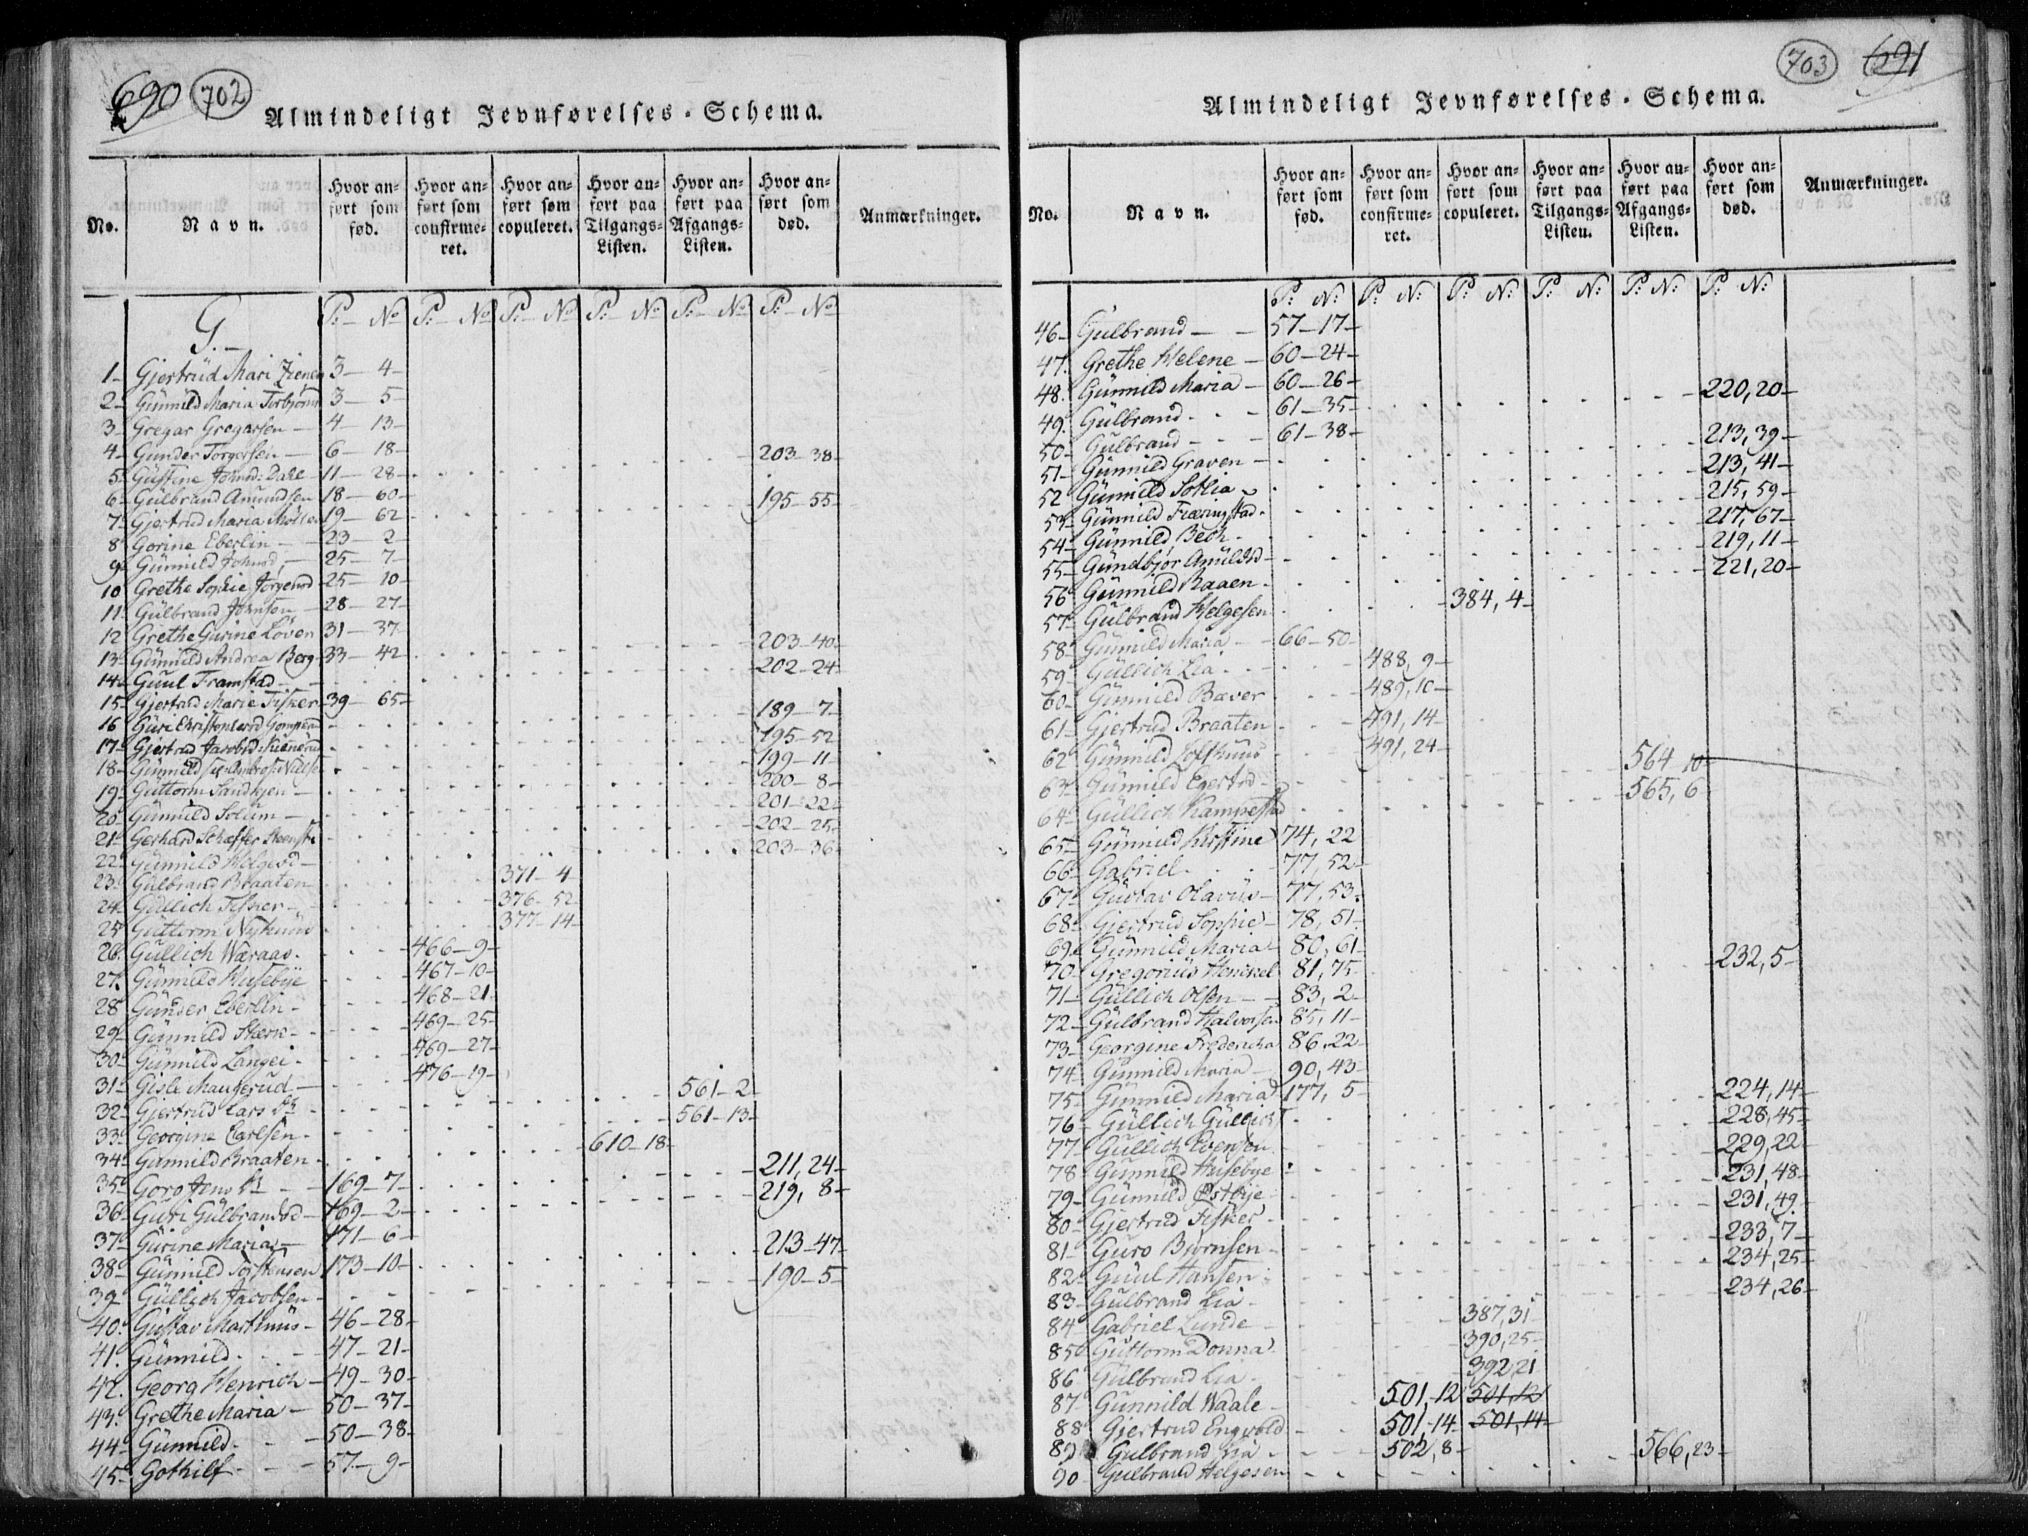 690 702
Almindeligt Jevnførelses-Schema.
No. Navn. Hvor anført som fød. Hvor anført som confirmeret. Hvor anført som copuleret. Hvor anført paa Tilgangs-Listen. Hvor anført paa Afgangs-Listen. Hvor anført som død. Anmærkninger.
G. P. No P. No P. No P. No P. No P. No
1 Gjertrüd Mari 3 4
2 Günnild Maria 3 5
3 Gregar Gregarsen 4 13
4 Gunder Torgersen 6 18 203 38
5 Güstine Johnsd: Dahl 11 28
6 Gülbrand Amundsen 18 60 195 55
7 Gjertrud Maria Möller 19 62
8 Gorine Eberlin 23 2
9 Günnild Johnsd. 25 7
10 Grethe Sophie Jorgensd 25 10
11 Gülbrand Johnsen 28 27
12 Grethe Gurine Löven 31 37
13 Günnild Andrea Berg 33 42 203 40
14 Guul Framstad 202 24
15 Gjertrud Marie Fisker 39 65
16 Guri Christophersd 189 7
17 Gjertrud Jacobsd 195 52
18 Günnild 199 11
19 Güttorm Sandkjen 200 8
20 Günnild Solum 201 22
21 Gerhard Schæffer 202 25
22 Günnild Helgesd 203 36
23 Gülbrand Braaten 371 4
24 Güllich Fisker 376 52
25 Güttorm Nyhuus 377 14
26 Gullich Waraas 466 9
27 Günnild Husebÿe 467 10
28 Günder Eberlin 468 21
29 Günnild Stærk 469 25
30 Günnild Langei 469 27
31 Gisle Maugerud 476 19
32 Gjertrud Lars Dr 561 2
33 Georgine Carlsen 561 13
34 Gunnild Braaten 610 18
35 Goro Jens Dr 169 7 211, 24
36 Guri Gülbrandsd 169 2 219, 8
37 Gurine Maria 171 6
38 Günnild Torstensen 173 10 213 47
39 Güllich Jacobsen 190 5
40 Gustav Martinüs 46 28
41 Günnild 47 21
42 Georg Henrich 49 30
43 Grethe Maria 50 37
44 Günnild 50 38
45 Gothilf 57 9
703 691
Almindeligt Jevnførelses-Schema.
No. Navn. Hvor anført som fød. Hvor anført som confirmeret. Hvor anført som copuleret. Hvor anført paa Tilgangs-Listen. Hvor anført paa Afgangs-Listen. Hvor anført som død. Anmærkninger.
P. N. P. N. P. N. P. N. P. N. P. N.
46 Gülbrand 57 17
47 Grethe Helene 60 24
48 Günnild Maria 60 26
49 Gülbrand 61 35 220, 20
50 Gülbrand 61 38
51 Günnild Graven 213, 39
52 Günnild Sotlia 213, 41
53 Günnild 215, 59
54 Günnild Bech 217, 67
55 Gundbjør 219, 11
56 Günnild Raaen 221, 20
57 Gulbrand Helgesen 384, 4
58 Günnild Maria 66 50
59 Güllich Lia 488, 9
60 Günnild Bæver 489, 10
61 Gjertrud Braaten 491, 14
62 Günnild Lofthuus 491, 24
63 Günnild 564 10
64 Güllich Kampestad 565, 6
65 Günnild Kirstine 74, 22
66 Gabriel 77, 52
67 Gustav Olavüs 77, 53
68 Gjertrud Sophie 78, 51
69 Günnild Maria 80, 61
70 Gregorius Henchel 81, 75 232, 5
71 Güllich Olsen 83, 2
72 Gülbrand Halvorsen 85, 11
73 Georgine Fredericha 86, 22
74 Günnild Maria 90, 43
75 Günnild Maria 177, 5
76 Güllich Güllich 224, 14
77 Gullich Evensen 228, 45
78 Günnild Husebye 229, 22
79 Günnild Østbye 231, 48
80 Gjertrud Fisker 231, 49
81 Guro Bjørnsen 233, 7
82 Guul Hansen 234, 25
83 Gülbrand Lia 234, 26
84 Gabriel Lunde 387, 31
85 Guttorm Donna 390, 25
86 Gülbrand Lia 392, 21
87 Gunnild Waale 501, 12 501, 12
88 Gjertrud Engvold 501, 14 501, 14
89 Gulbrand Lia 502, 8
90 Gulbrand Helgesen 566, 23